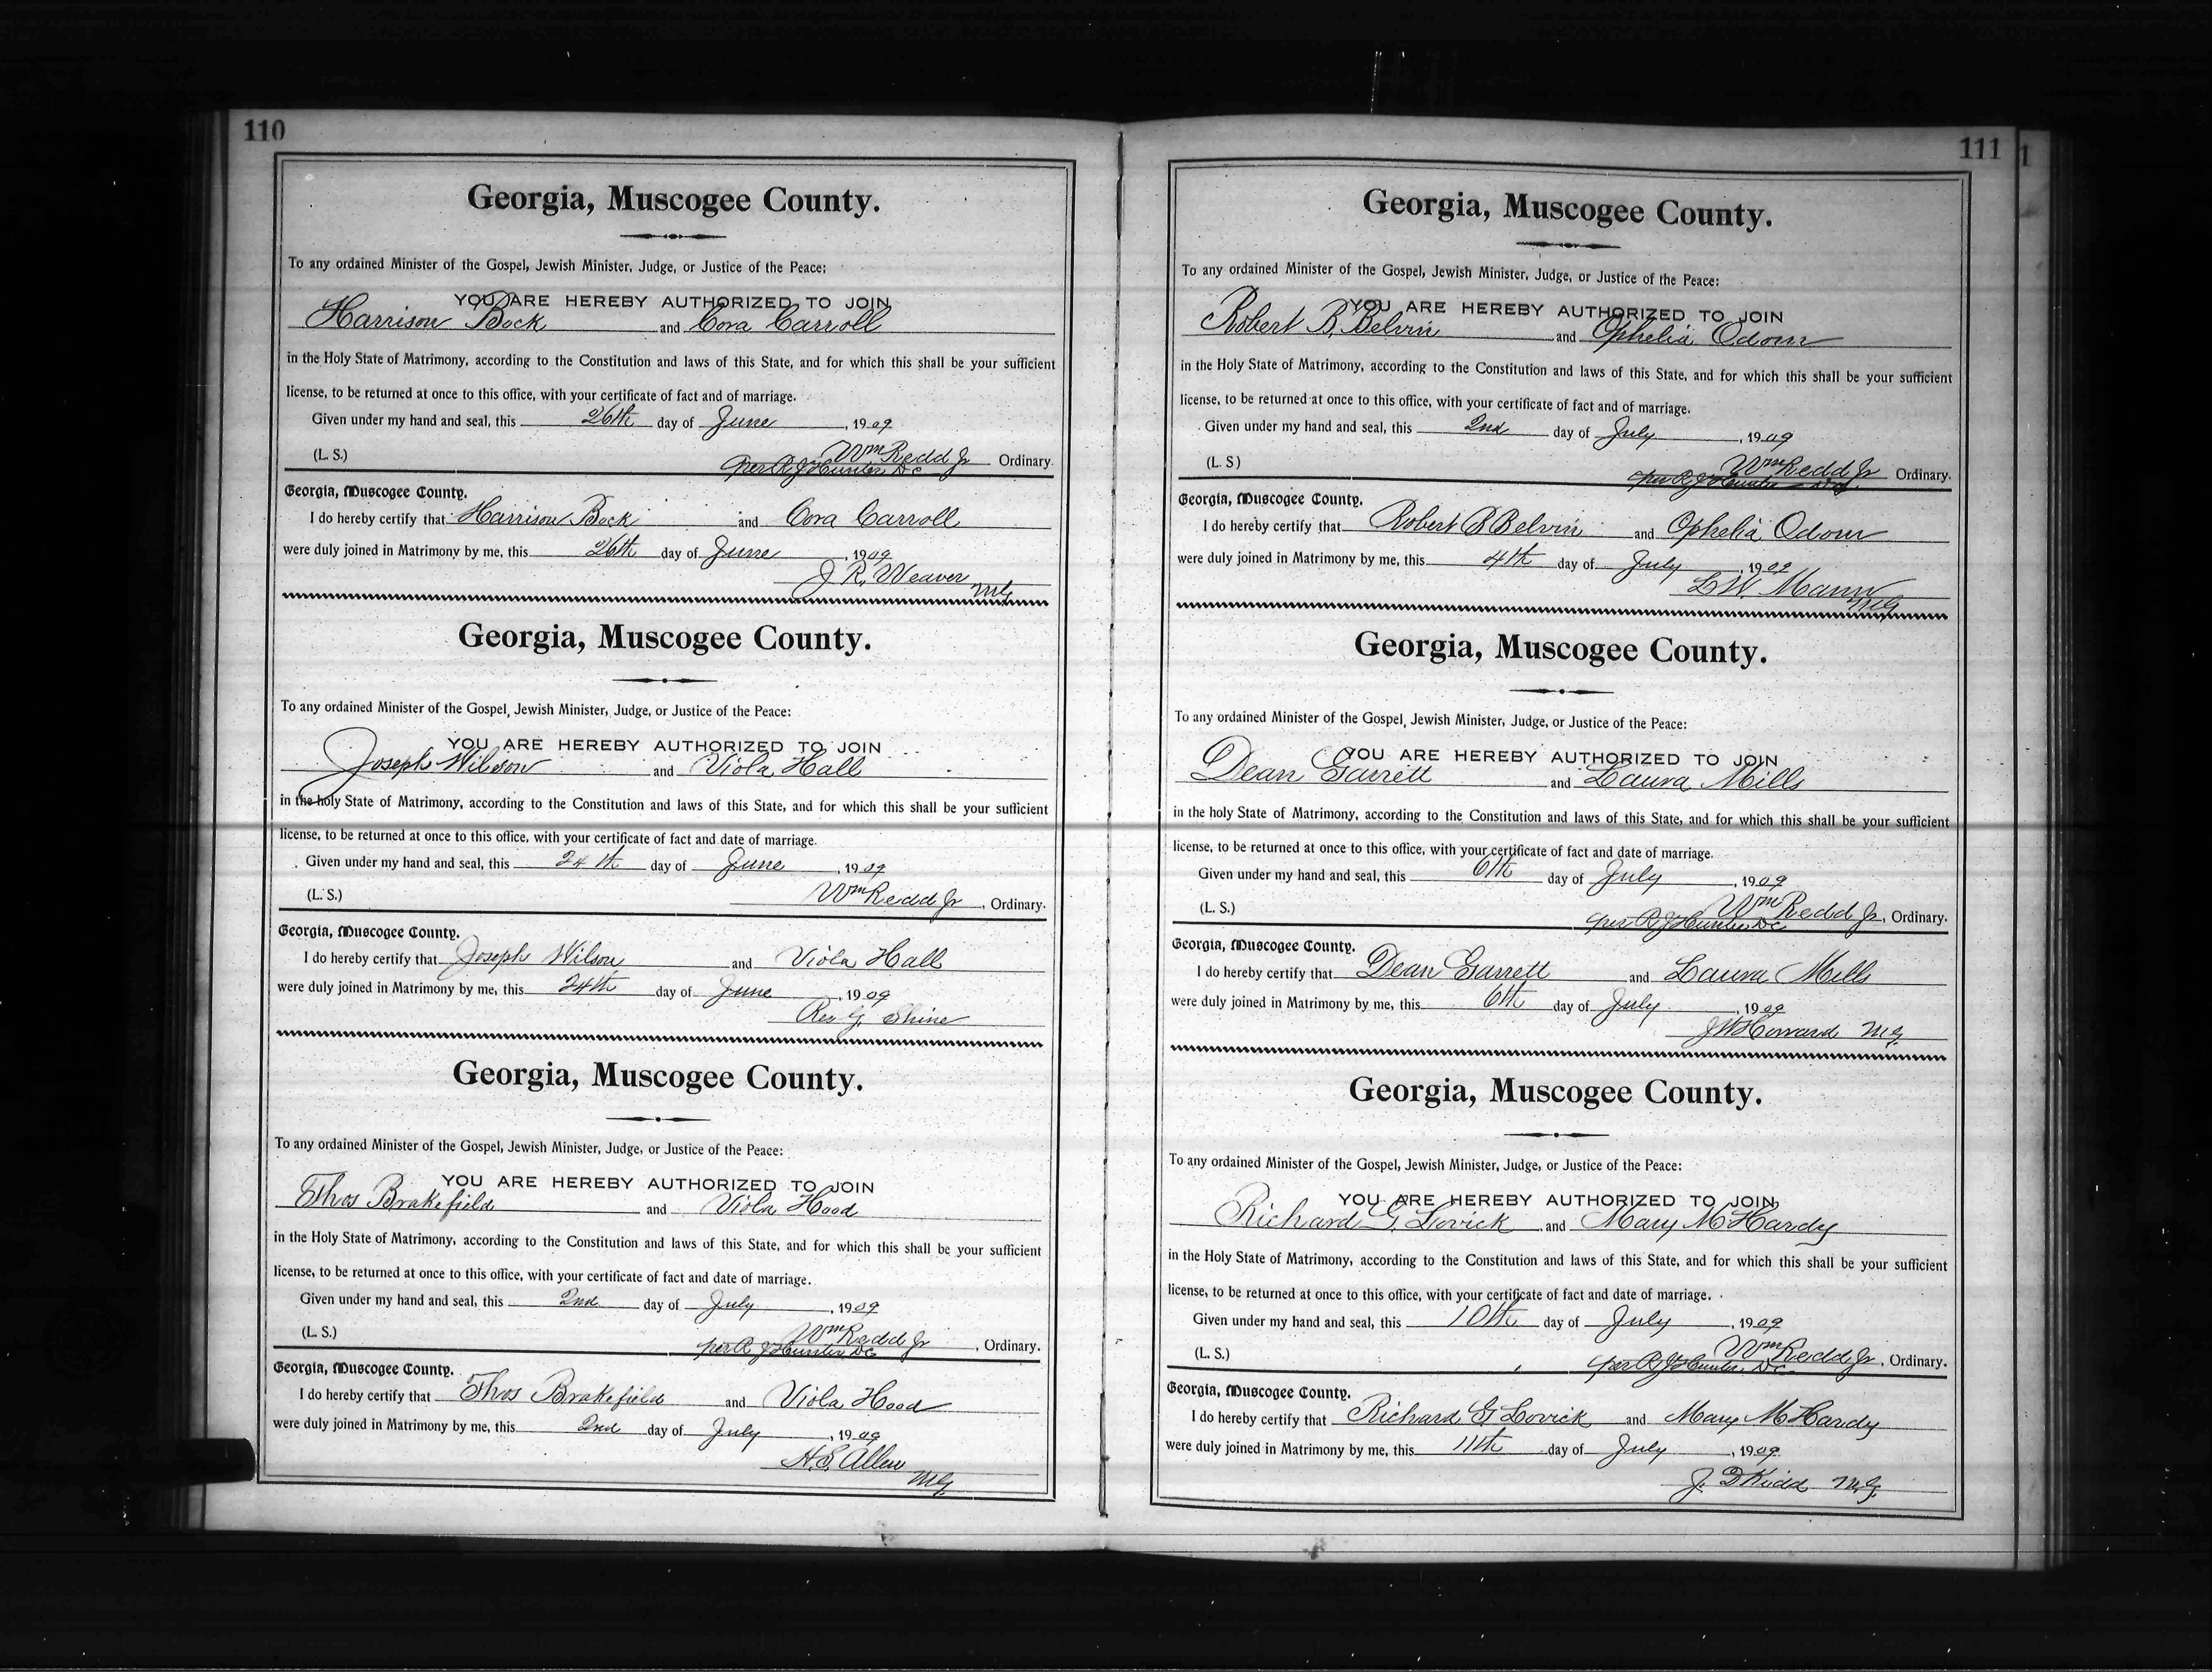 110
Georgia, Muscogee County.
To any ordained Minister of the Gospel, Jewish Minister, Judge, or Justice of the Peace:
YOU ARE HEREBY AUTHORIZED TO JOIN
Harrison Bock and Cora Carroll
in the Holy State of Matrimony, according to the Constitution and laws of this State, and for which this shall be your sufficient
license, to be returned at once to this office, with your certificate of fact and of marriage.
Given under my hand and seal, this 26th day of June, 1909
(L. S.) Wm Redd Jr Ordinary.
per R J Hunter DC
Georgia, Muscogee County.
I do hereby certify that Harrison Bock and Cora Carroll
were duly joined in Matrimony by me, this 26th day of June, 1909
J. R. Weaver
MG
Georgia, Muscogee County.
To any ordained Minister of the Gospel, Jewish Minister, Judge, or Justice of the Peace:
YOU ARE HEREBY AUTHORIZED TO JOIN
Joseph Wilson and Viola Hall
in the holy State of Matrimony, according to the Constitution and laws of this State, and for which this shall be your sufficient
license, to be returned at once to this office, with your certificate of fact and date of marriage.
Given under my hand and seal, this 24th day of June, 1909
(L. S.) Wm Redd Jr, Ordinary.
Georgia, Muscogee County.
I do hereby certify that Joseph Wilson and Viola Hall
were duly joined in Matrimony by me, this 24th day of June, 1909
Rev G. Shine
Georgia, Muscogee County.
To any ordained Minister of the Gospel, Jewish Minister, Judge, or Justice of the Peace:
YOU ARE HEREBY AUTHORIZED TO JOIN
Thos Brakefield and Viola Hood
in the Holy State of Matrimony, according to the Constitution and laws of this State, and for which this shall be your sufficient
license, to be returned at once to this office, with your certificate of fact and date of marriage.
Given under my hand and seal, this 2nd day of July, 1909
(L. S.) Wm Redd Jr, Ordinary.
per R J Hunter DC
Georgia, Muscogee County.
I do hereby certify that Thos Brakefield and Viola Hood
were duly joined in Matrimony by me, this 2nd day of July, 1909
H. S. Allen
MG
111
Georgia, Muscogee County.
To any ordained Minister of the Gospel, Jewish Minister, Judge, or Justice of the Peace:
YOU ARE HEREBY AUTHORIZED TO JOIN
Robert B. Belvin and Ophelia Odom
in the Holy State of Matrimony, according to the Constitution and laws of this State, and for which this shall be your sufficient
license, to be returned at once to this office, with your certificate of fact and of marriage.
Given under my hand and seal, this 2nd day of July, 1909
(L. S) Wm Redd Jr Ordinary.
per R J Hunter DC
Georgia, Muscogee County.
I do hereby certify that Robert B Belvin and Ophelia Odom
were duly joined in Matrimony by me, this 4th day of July, 1909
L W. Mann
MG
Georgia, Muscogee County.
To any ordained Minister of the Gospel, Jewish Minister, Judge, or Justice of the Peace:
YOU ARE HEREBY AUTHORIZED TO JOIN
Dean Garrett and Laura Mills
in the holy State of Matrimony, according to the Constitution and laws of this State, and for which this shall be your sufficient
license, to be returned at once to this office, with your certificate of fact and date of marriage.
Given under my hand and seal, this 6th day of July, 1909
(L. S.) Wm Redd Jr, Ordinary.
per R J Hunter DC
Georgia, Muscogee County.
I do hereby certify that Dean Garrett and Laura Mills
were duly joined in Matrimony by me, this 6th day of July, 1909
J W Howard MG
Georgia, Muscogee County.
To any ordained Minister of the Gospel, Jewish Minister, Judge, or Justice of the Peace:
YOU ARE HEREBY AUTHORIZED TO JOIN
Richard G. Lovick and Mary McHardy
in the Holy State of Matrimony, according to the Constitution and laws of this State, and for which this shall be your sufficient
license, to be returned at once to this office, with your certificate of fact and date of marriage.
Given under my hand and seal, this 10th day of July, 1909
(L. S.) Wm Redd Jr, Ordinary.
per R J Hunter DC
Georgia, Muscogee County.
I do hereby certify that Richard G Lovick and Mary McHardy
were duly joined in Matrimony by me, this 11th day of July, 1909
J. D Kidd MG